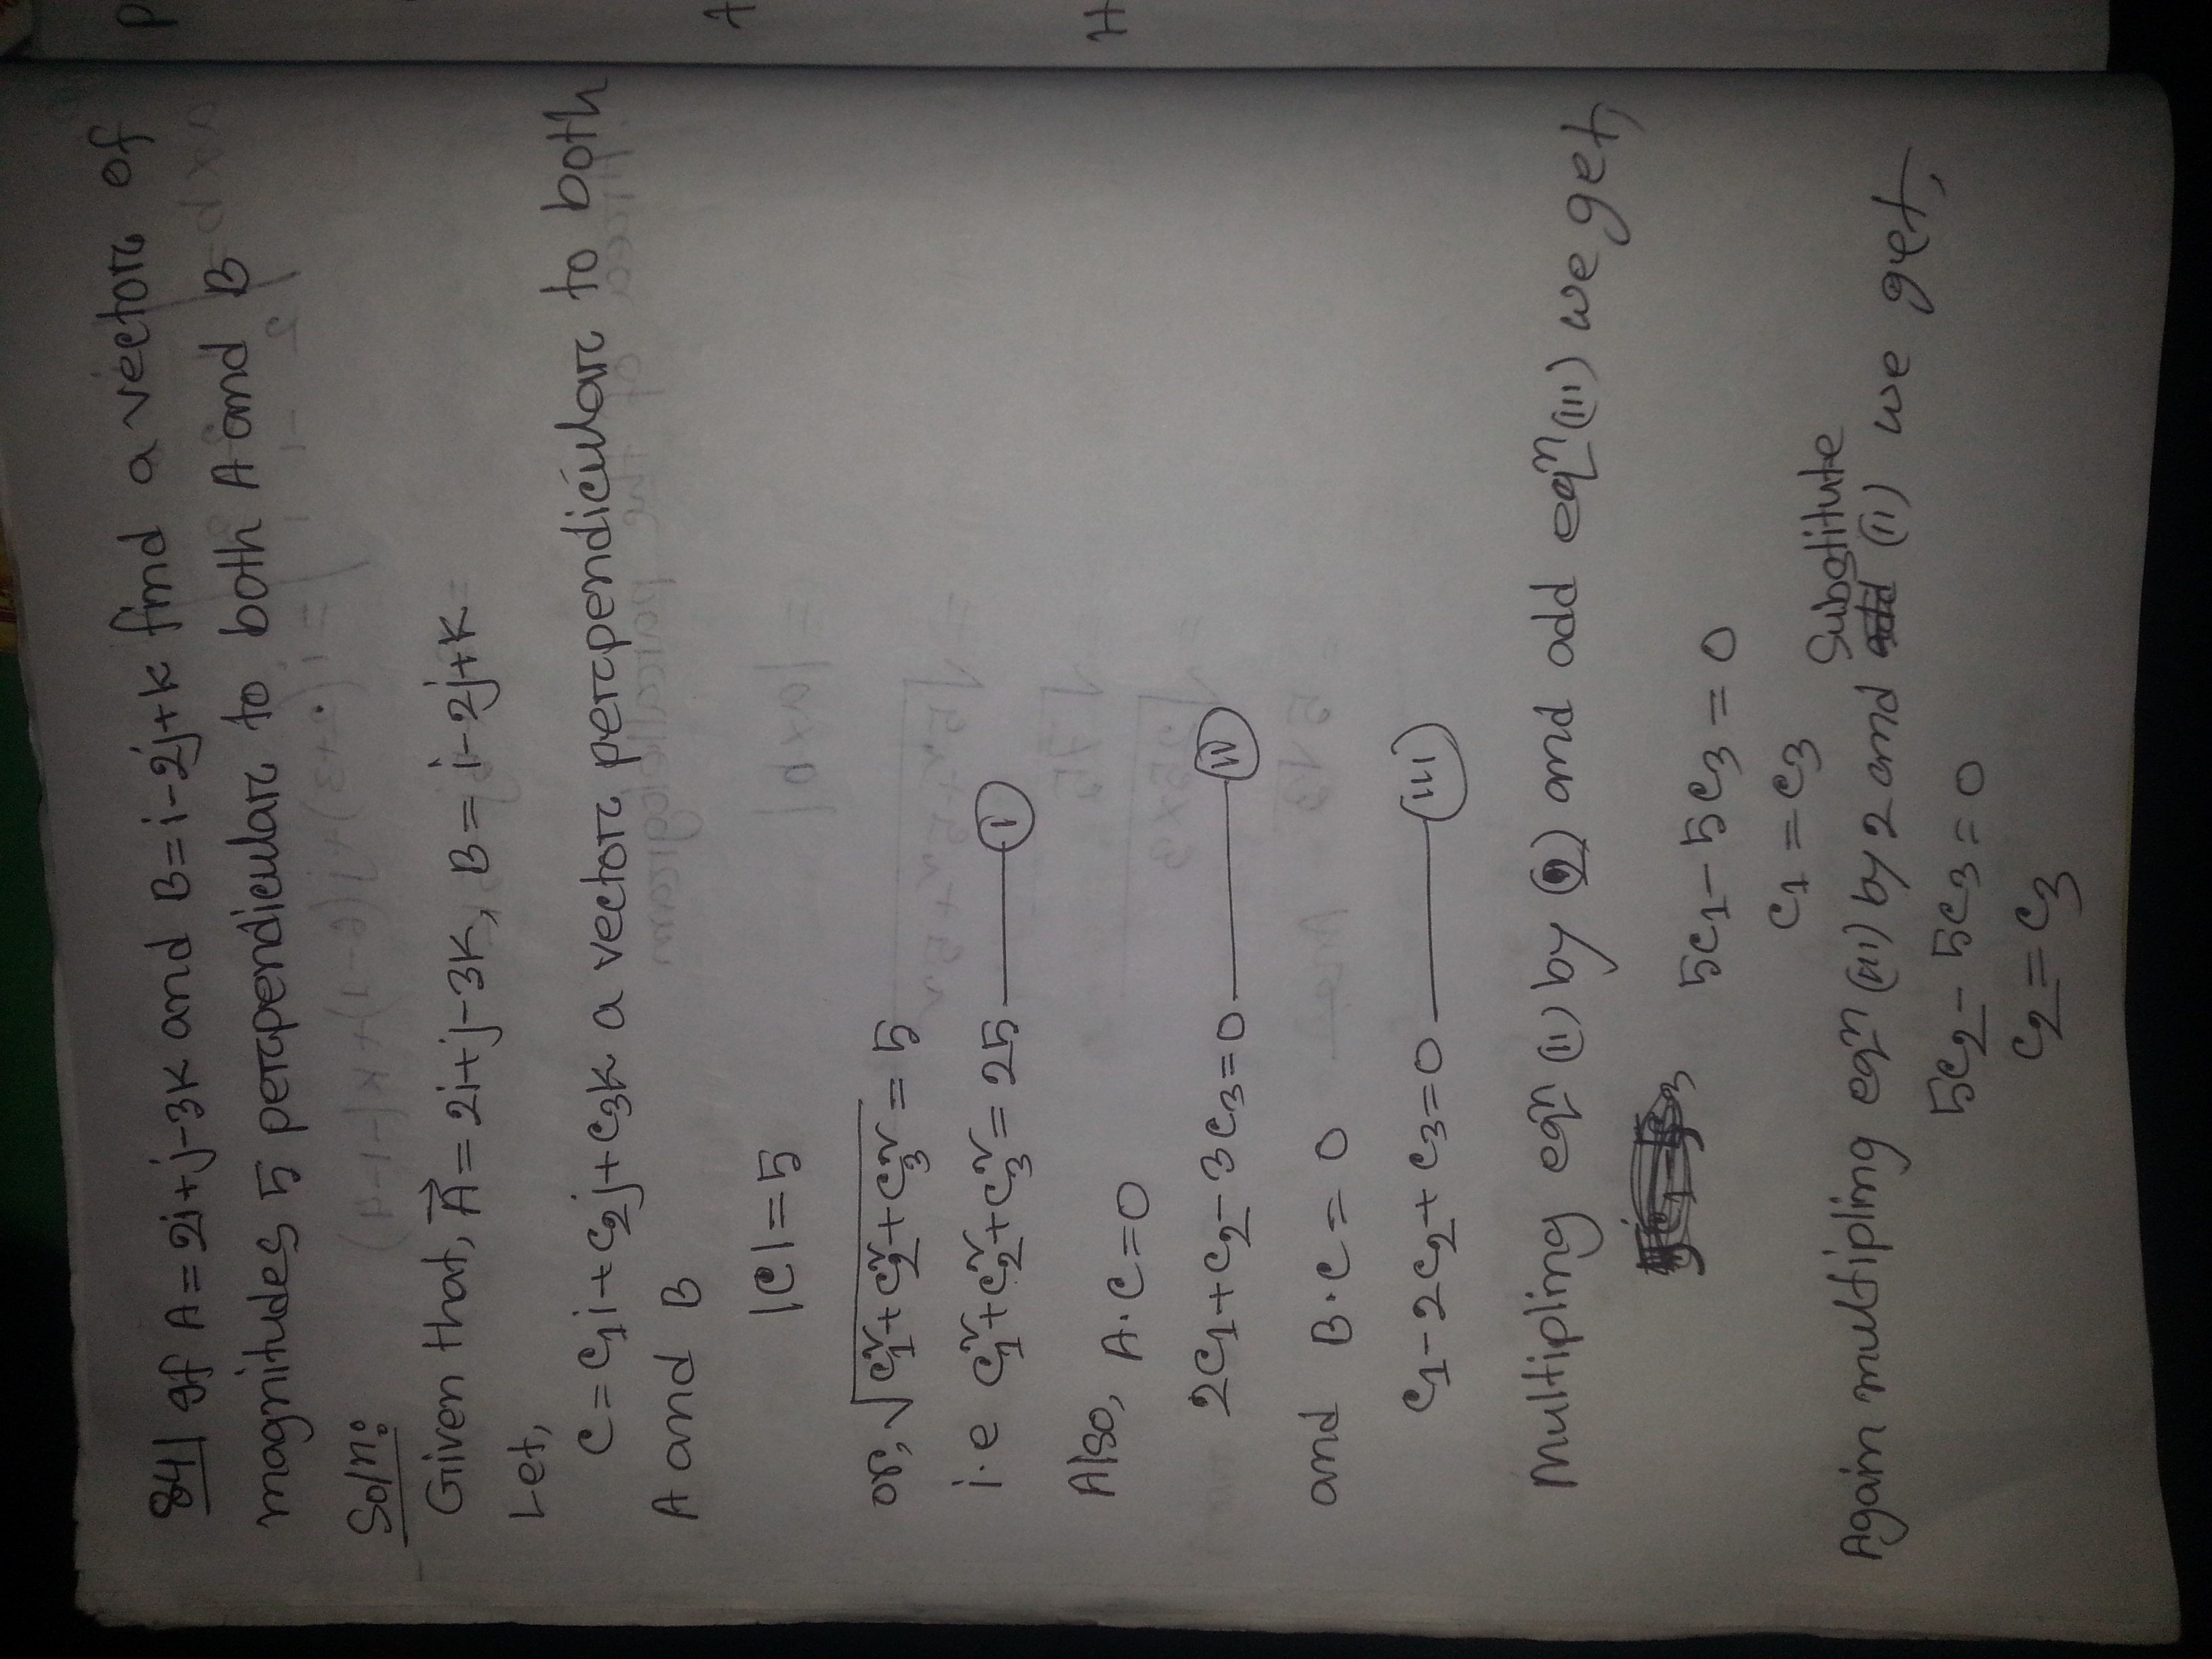 84| If A=2i+j-3k and B=i-2j+k find a vector of
magnitudes 5 perpendicular to both A and B
Soln:
Given that, A⃗=2i+j-3k, B= i-2j+k
Let,
C=C₁i+C₂j+C₃k a vector perpendicular to both
A and B
|C|=5
or, √C₁²+C₂²+C₃² = 5
i.e C₁²+C₂²+C₃²= 25 — (I)
Also, A·C=0
2C₁+C₂-3C₃=0 — (II)
and B·C= 0
C₁-2C₂+C₃=0 — (III)
Multipling eqn (II) by (2) and add eqn (III) we get,
5C₁-5C₃=0
C₁=C₃
Substitute
Again multipling eqn (III) by 2 and (II) we get,
5C₂-5C₃=0
C₂=C₃